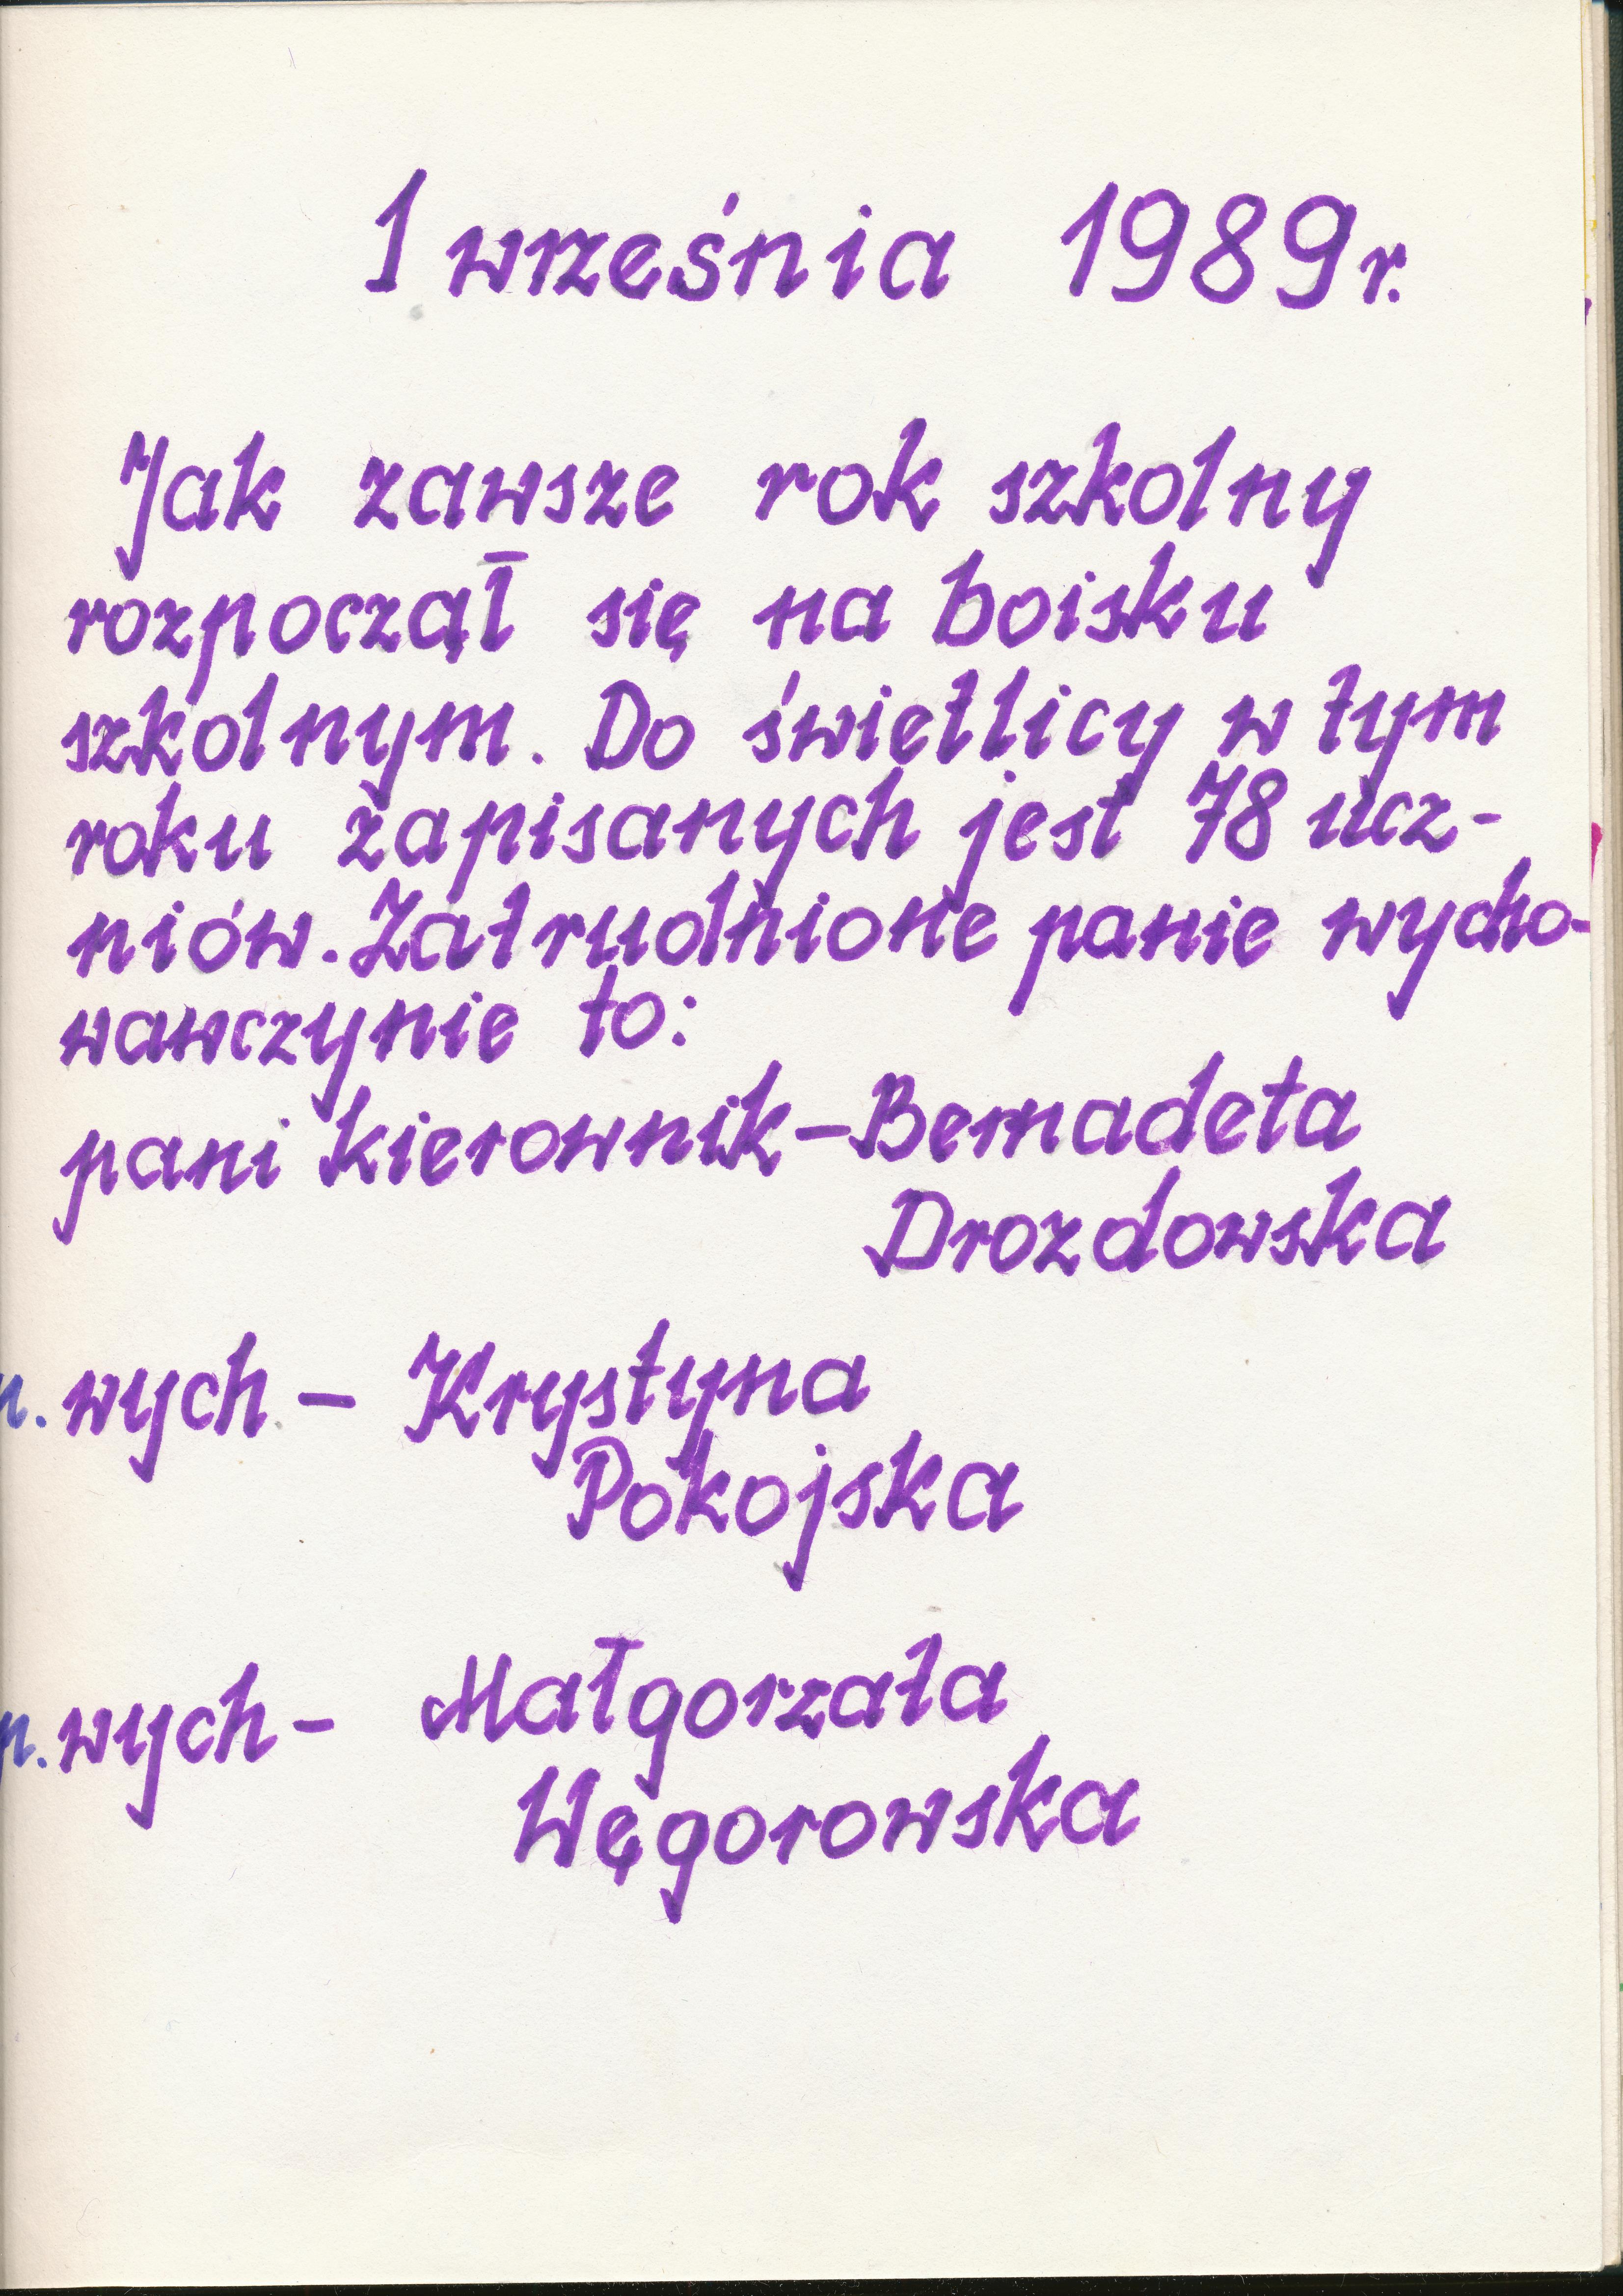 1 września 1989 r.
Jak zawsze rok szkolny
rozpoczął się na boisku
szkolnym. Do świetlicy w tym
roku zapisanych jest 78 ucz-
niów. Zatrudnione panie wycho-
wawczynie to:
pani kierownik - Bernadeta
Drozdowska
p. wych - Krystyna
Pokojska
p. wych - Małgorzata
Węgorowska